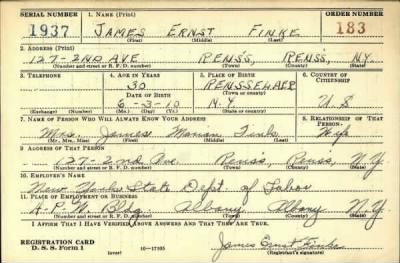 SERIAL NUMBER 1. NAME (Print) ORDER NUMBER
1937 JAMES ERNST FINKE 183
(First) (Middle) (Last)
2. ADDRESS (Print)
127-2ND AVE RENS'S, RENS'S, N.Y.
(Number and street or R. F. D. number) (Town) (County) (State)
3. TELEPHONE 4. AGE IN YEARS 5. PLACE OF BIRTH 6. COUNTRY OF CITIZENSHIP
30 RENSSELAER
DATE OF BIRTH (Town or county)
6-3-10 N.Y. U.S
(Exchange) (Number) (Mo.) (Day) (Yr.) (State or country)
7. NAME OF PERSON WHO WILL ALWAYS KNOW YOUR ADDRESS 8. RELATIONSHIP OF THAT PERSON
Mrs. James Marian Finke Wife
(Mr., Mrs., Miss) (First) (Middle) (Last)
9. ADDRESS OF THAT PERSON
127-2nd Ave. Rens's, Renss, N.Y.
(Number and street or R. F. D. number) (Town) (County) (State)
10. EMPLOYER'S NAME
New York State Dept. of Labor
11. PLACE OF EMPLOYMENT OR BUSINESS
A.P.W. Bldg. Albany Albany N.Y.
(Number and street or R. F. D. number) (Town) (County) (State)
I AFFIRM THAT I HAVE VERIFIED ABOVE ANSWERS AND THAT THEY ARE TRUE.
REGISTRATION CARD
D. S. S. Form 1 (over) 16-17105 James Ernst Finke
(Registrant's signature)